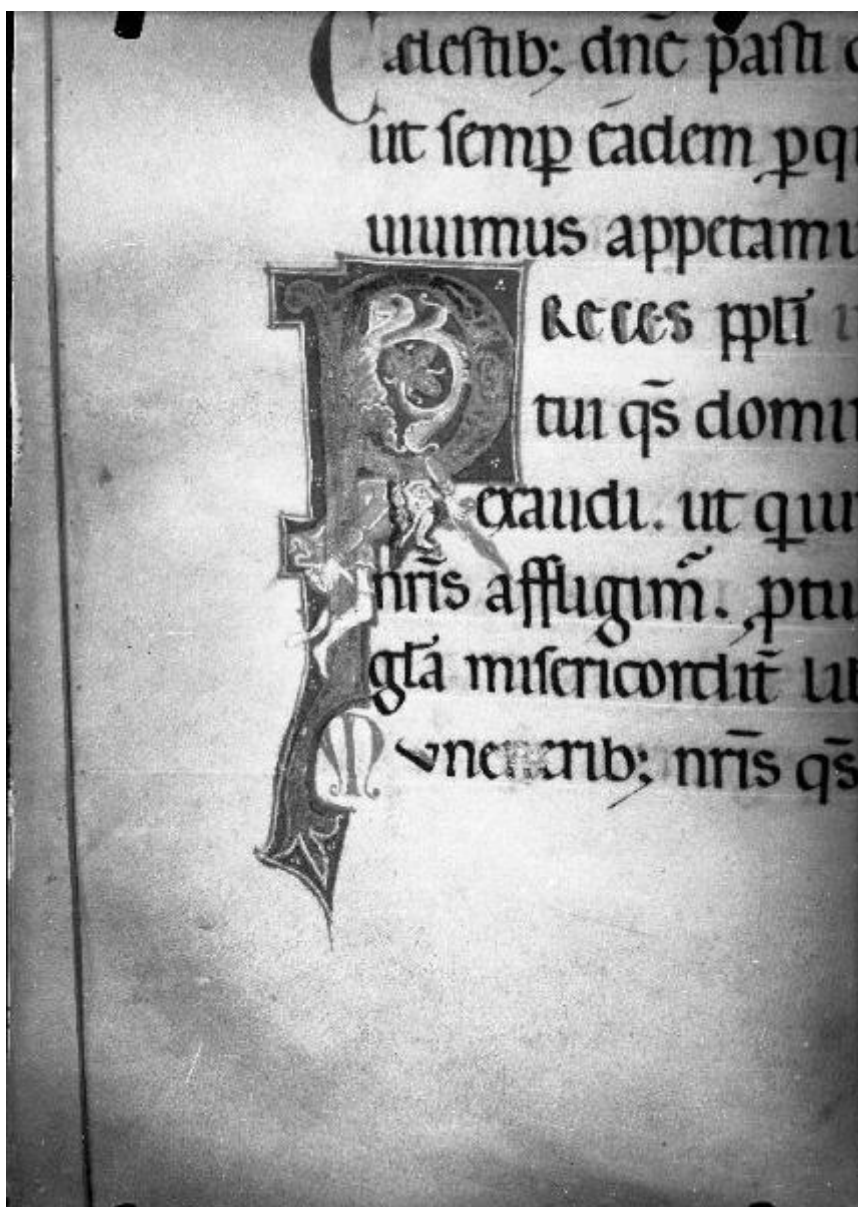 Cęlestib; dn̄e pasti
ut semp̱ ēadem ꝑq
uiuimus appetamu
PReces ppl̄i
tui q̄s domi
exaudi. ut qui
nr̄is affligim̃.
gl̄a misericordit̄
Muneribus; nr̄is q̄s